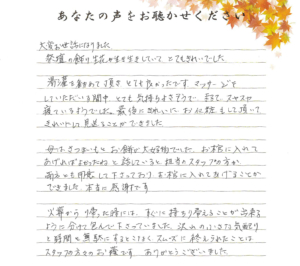 あなたの声をお聴かせください
大変お世話になりました
祭壇の飾り生花が生き生きしていて とてもきれいでした。
湯灌を勧めて頂き とても良かったです マッサージを
していただいている間中、とても気持ちよさそうで、まるで、スヤスヤ
寝ているようでした。最後に きれいに お化粧もして頂いて
きれいに 見送ることができました
母は、さつまいもとお餅が大好物でした。お棺に入れて
あげればよかったねと 話していると 担当のスタッフの方が
両方とも用意して下さっており お棺に入れてあげることが
できました。本当に感謝です
火葬から 帰った時には、すぐに 持ち帰ることが出来る
ように 分けて包んで下さっていました。沢山の小さな気配り
と時間を無駄にすることなく、スムーズに終えられたことは
スタッフの方々のお蔭です。ありがとうございました。